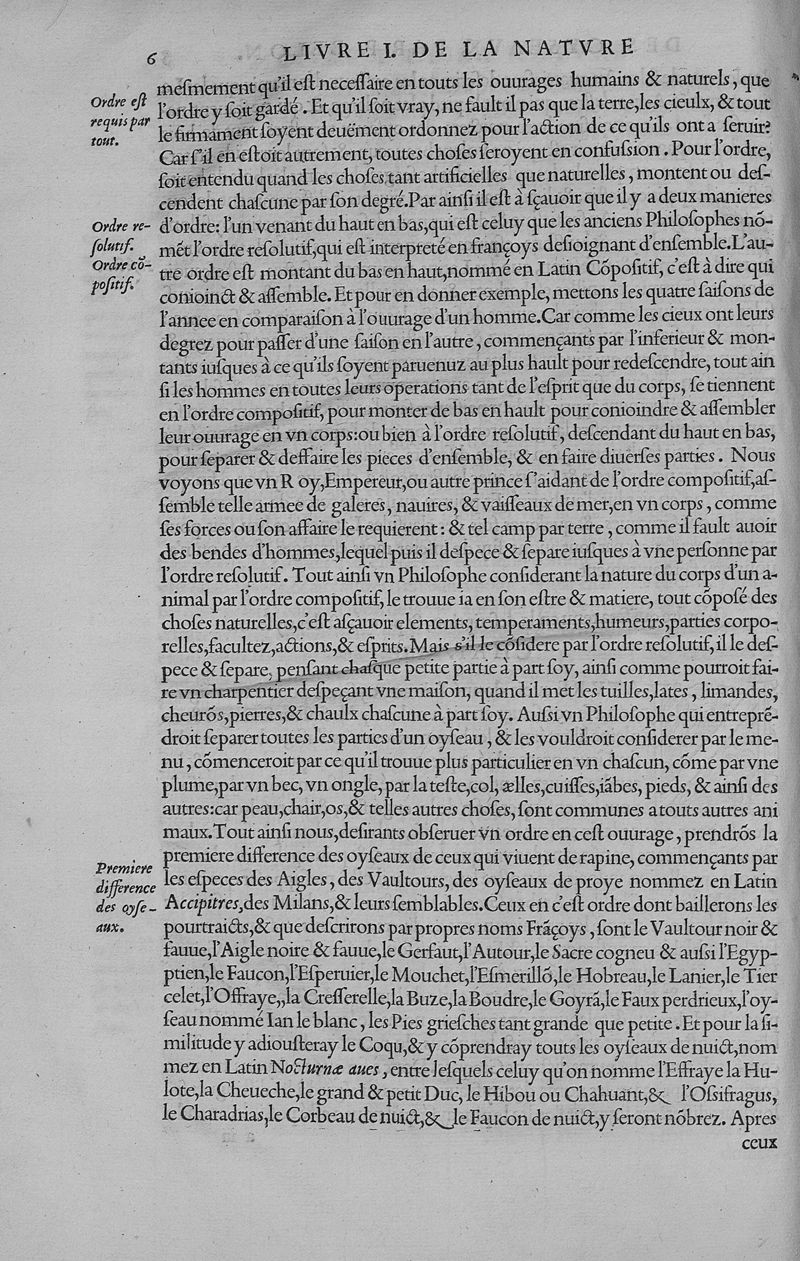 6
LIVRE I. DE LA NATVRE
meſmement qu'il eſt neceſſaire en touts les ouurages humains & naturels, que
Ordre eſt
requis par
tout.
l'ordre y ſoit gardé. Et qu'il ſoit vray, ne fault il pas que la terre, les cieulx, & tout
le firmament ſoyent deuëment ordonnez pour l'action de ce qu'ils ont a ſeruir?
Car ſ'il en eſtoit autrement, toutes choſes ſeroyent en confuſsion. Pour l'ordre,
ſoit entendu quand les choſes tant artificielles que naturelles, montent ou deſ-
cendent chaſcune par ſon degré. Par ainſi il eſt à ſçauoir que il y a deux manieres
Ordre re-
ſolutif.
Ordre cõ-
poſitif.
d'ordre: l'un venant du haut en bas, qui eſt celuy que les anciens Philoſophes nõ-
mẽt l'ordre reſolutif, qui eſt interpreté en françoys deſioignant d'enſemble. L'au-
tre ordre eſt montant du bas en haut, nommé en Latin Cõpoſitif, c'eſt à dire qui
conioinct & aſſemble. Et pour en donner exemple, mettons les quatre ſaiſons de
l'annee en comparaiſon à l'ouurage d'un homme. Car comme les cieux ont leurs
degrez pour paſſer d'une ſaiſon en l'autre, commençants par l'inferieur & mon-
tants iuſques à ce qu'ils ſoyent paruenuz au plus hault pour redeſcendre, tout ain
ſi les hommes en toutes leurs operations tant de l'eſprit que du corps, ſe tiennent
en l'ordre compoſitif, pour monter de bas en hault pour conioindre & aſſembler
leur ouurage en vn corps: ou bien à l'ordre reſolutif, deſcendant du haut en bas,
pour ſeparer & deffaire les pieces d'enſemble, & en faire diuerſes parties. Nous
voyons que vn R oy, Empereur, ou autre prince ſ'aidant de l'ordre compoſitif, aſ-
ſemble telle armee de galeres, nauires, & vaiſſeaux de mer, en vn corps, comme
ſes forces ou ſon affaire le requierent: & tel camp par terre, comme il fault auoir
des bendes d'hommes, lequel puis il deſpece & ſepare iuſques à vne perſonne par
l'ordre reſolutif. Tout ainſi vn Philoſophe conſiderant la nature du corps d'un a-
nimal par l'ordre compoſitif, le trouue ia en ſon eſtre & matiere, tout cõpoſé des
choſes naturelles, c'eſt aſçauoir elements, temperaments, humeurs, parties corpo-
relles, facultez, actions, & eſprits. Mais s'il le cõſidere par l'ordre reſolutif, il le deſ-
pece & ſepare, penſant chaſque petite partie à part ſoy, ainſi comme pourroit fai-
re vn charpentier deſpeçant vne maiſon, quand il met les tuilles, lates, limandes,
cheurõs, pierres, & chaulx chaſcune à part ſoy. Auſsi vn Philoſophe qui entreprẽ-
droit ſeparer toutes les parties d'un oyſeau, & les vouldroit conſiderer par le me-
nu, cõmenceroit par ce qu'il trouue plus particulier en vn chaſcun, cõme par vne
plume, par vn bec, vn ongle, par la teſte, col, ælles, cuiſſes, iãbes, pieds, & ainſi des
autres: car peau, chair, os, & telles autres choſes, ſont communes a touts autres ani
maux. Tout ainſi nous, deſirants obſeruer vn ordre en ceſt ouurage, prendrõs la
Premiere
difference
des oyſe-
aux.
premiere difference des oyſeaux de ceux qui viuent de rapine, commençants par
les eſpeces des Aigles, des Vaultours, des oyſeaux de proye nommez en Latin
Accipitres, des Milans, & leurs ſemblables. Ceux en c'eſt ordre dont baillerons les
pourtraicts, & que deſcrirons par propres noms Frãçoys, ſont le Vaultour noir &
fauue, l'Aigle noire & fauue, le Gerfaut, l'Autour, le Sacre cogneu & auſsi l'Egyp-
ptien, le Faucon, l'Eſperuier, le Mouchet, l'Eſmerillõ, le Hobreau, le Lanier, le Tier
celet, l'Offraye,, la Creſſerelle, la Buze, la Boudre, le Goyrã, le Faux perdrieux, l'oy-
ſeau nommé Ian le blanc, les Pies grieſches tant grande que petite. Et pour la ſi-
militude y adiouſteray le Coqu, & y cõprendray touts les oyſeaux de nuict, nom
mez en Latin Nocturnæ aues, entre leſquels celuy qu'on nomme l'Effraye la Hu-
lote, la Cheueche, le grand & petit Duc, le Hibou ou Chahuant, & l'Oſsifragus,
le Charadrias, le Corbeau de nuict, & le Faucon de nuict, y ſeront nõbrez. Apres
ceux